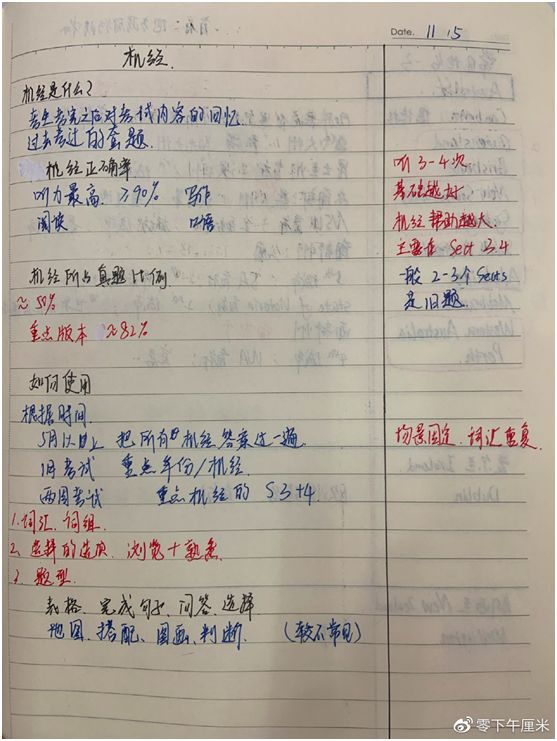 Date. 11 15
机经.
机经是什么?
考生考完之后对考试内容的回忆.
过去考过的套题.
机经正确率 听3-4次
听力最高. ≥90% 写作 基础越好
阅读 口语 机经帮助越大.
主要在 Sect 3.4
机经所占真题比例 一般 2-3个 Sects
≈50% 是旧题.
重点版本 ≈82%
如何使用
根据时间
5月以上 把所有机经答案过一遍 场景固定. 词汇重复
1月考试 重点年份/机经
两周考试 重点机经的 S3+4.
1.词汇、词组.
2. 选择的选项. 浏览+熟悉
3 题型.
表格、完成句子、问答、选择
地图、搭配、图画、判断. (较不常见)
零下午厘米